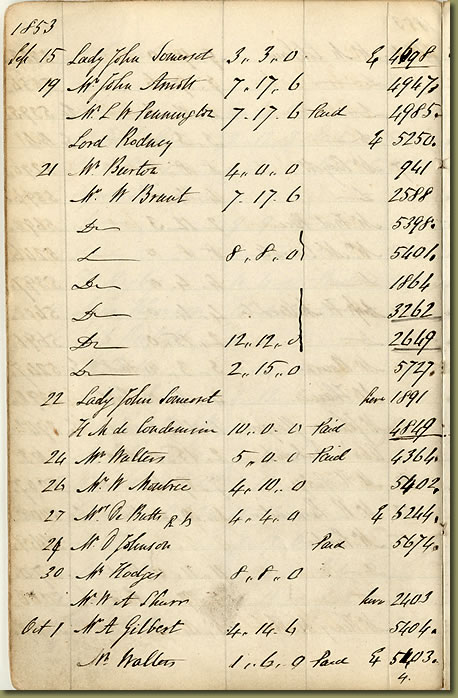 1853
Sep 15 Lady John Somerset 3.,3.,0 & 4698
19 Mr John Smith 7.,17.,6 4947.
Mr L W Pennington 7.17.6 Paid 4985.
Lord Rodney & 5250.
21 Mr Burton 4.,0.,0 941
Mr W Brant 7.17.6 2588
Do 5398.
Do 8.,8.,0 5401.
Do 1864
Do 3262
Do 12.,12.,0 2649
Do 2.,15.,0 5727.
22 Lady John Somerset here 1891
H M de 10.,0.0 Paid 4849
24 Mr Walters 5.,0.0 Paid 4364.
26 Mr W 4.,10.,0 5402.
27 Mrs De Butts 4.,4.,0 & 5244.
29 Mr D Johnson Paid 5674.
30 Mr Hodges 8.,8.,0
Mr W A here 2403
Oct 1 Mr A Gilbert 4.,14.6 5404.
Mr Walters 1.,6.,0 Paid & 5403.
4.